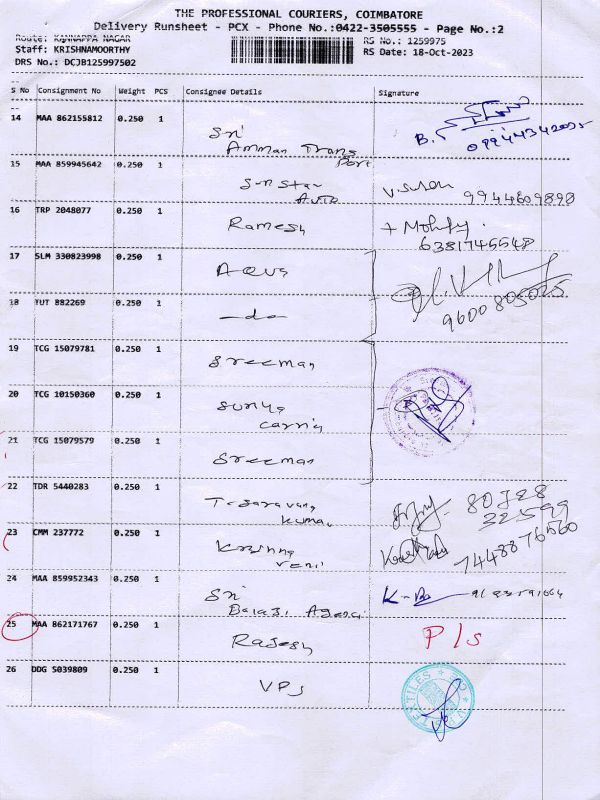 THE PROFESSIONAL COURIERS, COIMBATORE
Delivery Runsheet - PCX - Phone No.:0422-3505555 - Page No.:2
Route: KANNAPPA NAGAR
RS No.: 1259975
Staff: KRISHNAMOORTHY
RS Date: 18-Oct-2023
DRS No.: DCJB125997502
S No Consignment No Weight PCS Consignee Details Signature
14 MAA 862155812 0.250 1 Sri
Amman Trans
Port
B. 09944342005
15 MAA 859945642 0.250 1 Sun Star
Auto
9944609890
16 TRP 2048077 0.250 1 Ramesh
6381745548
17 SLM 330823998 0.250 1 Aqua
18 TUT 882269 0.250 1 —do—
9600805025
19 TCG 15079781 0.250 1 Sreeman
20 TCG 10150360 0.250 1 Surya
21 TCG 15079579 0.250 1 Sreeman
22 TDR 5440283 0.250 1 T. Saravana
Kumar
80728
32599
23 CMM 237772 0.250 1 Krishna
Veni
7448876560
24 MAA 859952343 0.250 1 Sri
Balaji Agenci
25 MAA 862171767 0.250 1 Rajesh
P/s
26 DDG 5039809 0.250 1 VPS